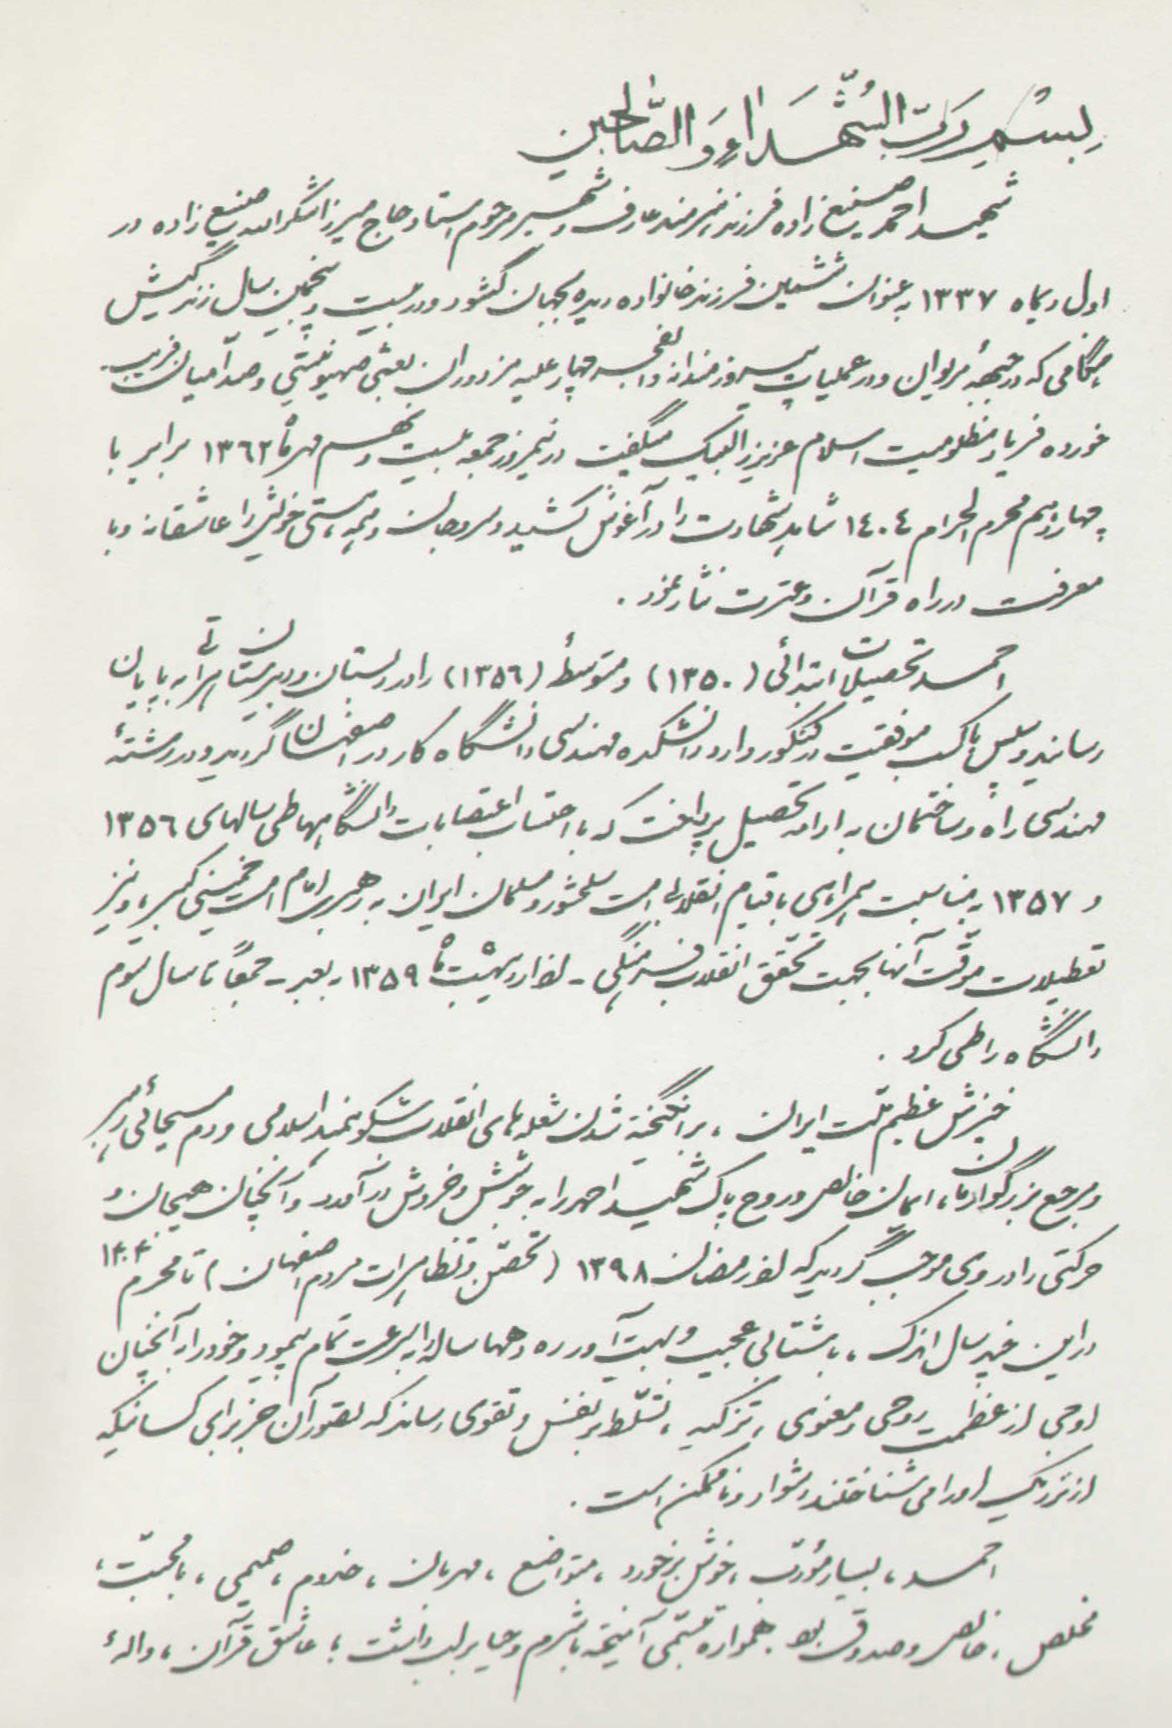 بسم رب الشُّهَداءِ وَ الصّالحین
شهید احمد صنیع زاده فرزند هنرمند عارف و شهیر مرحوم استاد حاج میرزا شکرالله صنیع زاده در
اول دیماه ۱۳۳۷ به عنوان ششمین فرزند خانواده دیده بجهان گشود و در بیست و پنجمین سال زندگیش
هنگامی که در جبههٔ مریوان و در عملیات پیروزمندانه والفجر چهار علیه مزدوران بعثی صهیونیستی و صدامیان فریب
خورده فریاد مظلومیت اسلام عزیز را لبیک میگفت در نیمروز جمعه بیست و نهم مهرماه ۱۳۶۲ برابر با
چهاردهم محرم الحرام ۱۴۰۴ شاهد شهادت را در آغوش کشید و سر و جان و همه هستی خویش را عاشقانه و با
معرفت در راه قرآن و عترت نثار نمود .
احمد تحصیلات ابتدائی (۱۳۵۰) و متوسطهٔ (۱۳۵۶) را در دبستان و دبیرستان به پایان
رسانید و سپس با کسب موفقیت در کنکور وارد دانشکده مهندسی دانشگاه کار در اصفهان گردید و در رشتهٔ
مهندسی راه و ساختمان به ادامه تحصیل پرداخت که با احتساب اعتصابات دانشگاهها طی سالهای ۱۳۵۶
و ۱۳۵۷ به مناسبت همراهی با قیام انقلابی امت سلحشور و مسلمان ایران به رهبری امام امت خمینی کبیر، و نیز
تعطیلات موقّت آنها بجهت تحقّق انقلاب فرهنگی - از اردیبهشت ماه ۱۳۵۹ ببعد - جمعاً تا سال سوم
دانشگاه را طی کرد .
خیزش عظیم ملّت ایران ، برانگیخته شدن شعله های انقلاب شکوهمند اسلامی و دم مسیحائی رهبر
و مرجع بزرگوارمان، ایمان خالص و روح پاک شهید احمد را به جوشش و خروش درآمد و آنچنان هیجان و
حرکتی را در وی موجب گردید که از رمضان ۱۳۹۸ (تحصّن و تظاهرات مردم اصفهان) تا محرم ۱۴۰۴
در این چند سال اندک ، با شتابی عجیب و بهت آور ره دهها ساله را به سرعت تمام پیمود و خود را به آنچنان
اوجی از عظمت روحی و معنوی ، تزکیه ، تسلّط بر نفس و تقوی رساند که تصور آن جز برای کسانیکه
از نزدیک او را می شناختند دشوار و ناممکن است .
احمد ، بسیار مؤدّب ، خوش برخورد ، متواضع ، مهربان ، خدوم ، صمیمی ، با محبّت ،
مخلص ، خالص و صدوق بود همواره تبسّمی آمیخته با شرم و حیا بر لب داشت ؛ عاشق قرآن ، والهٔ